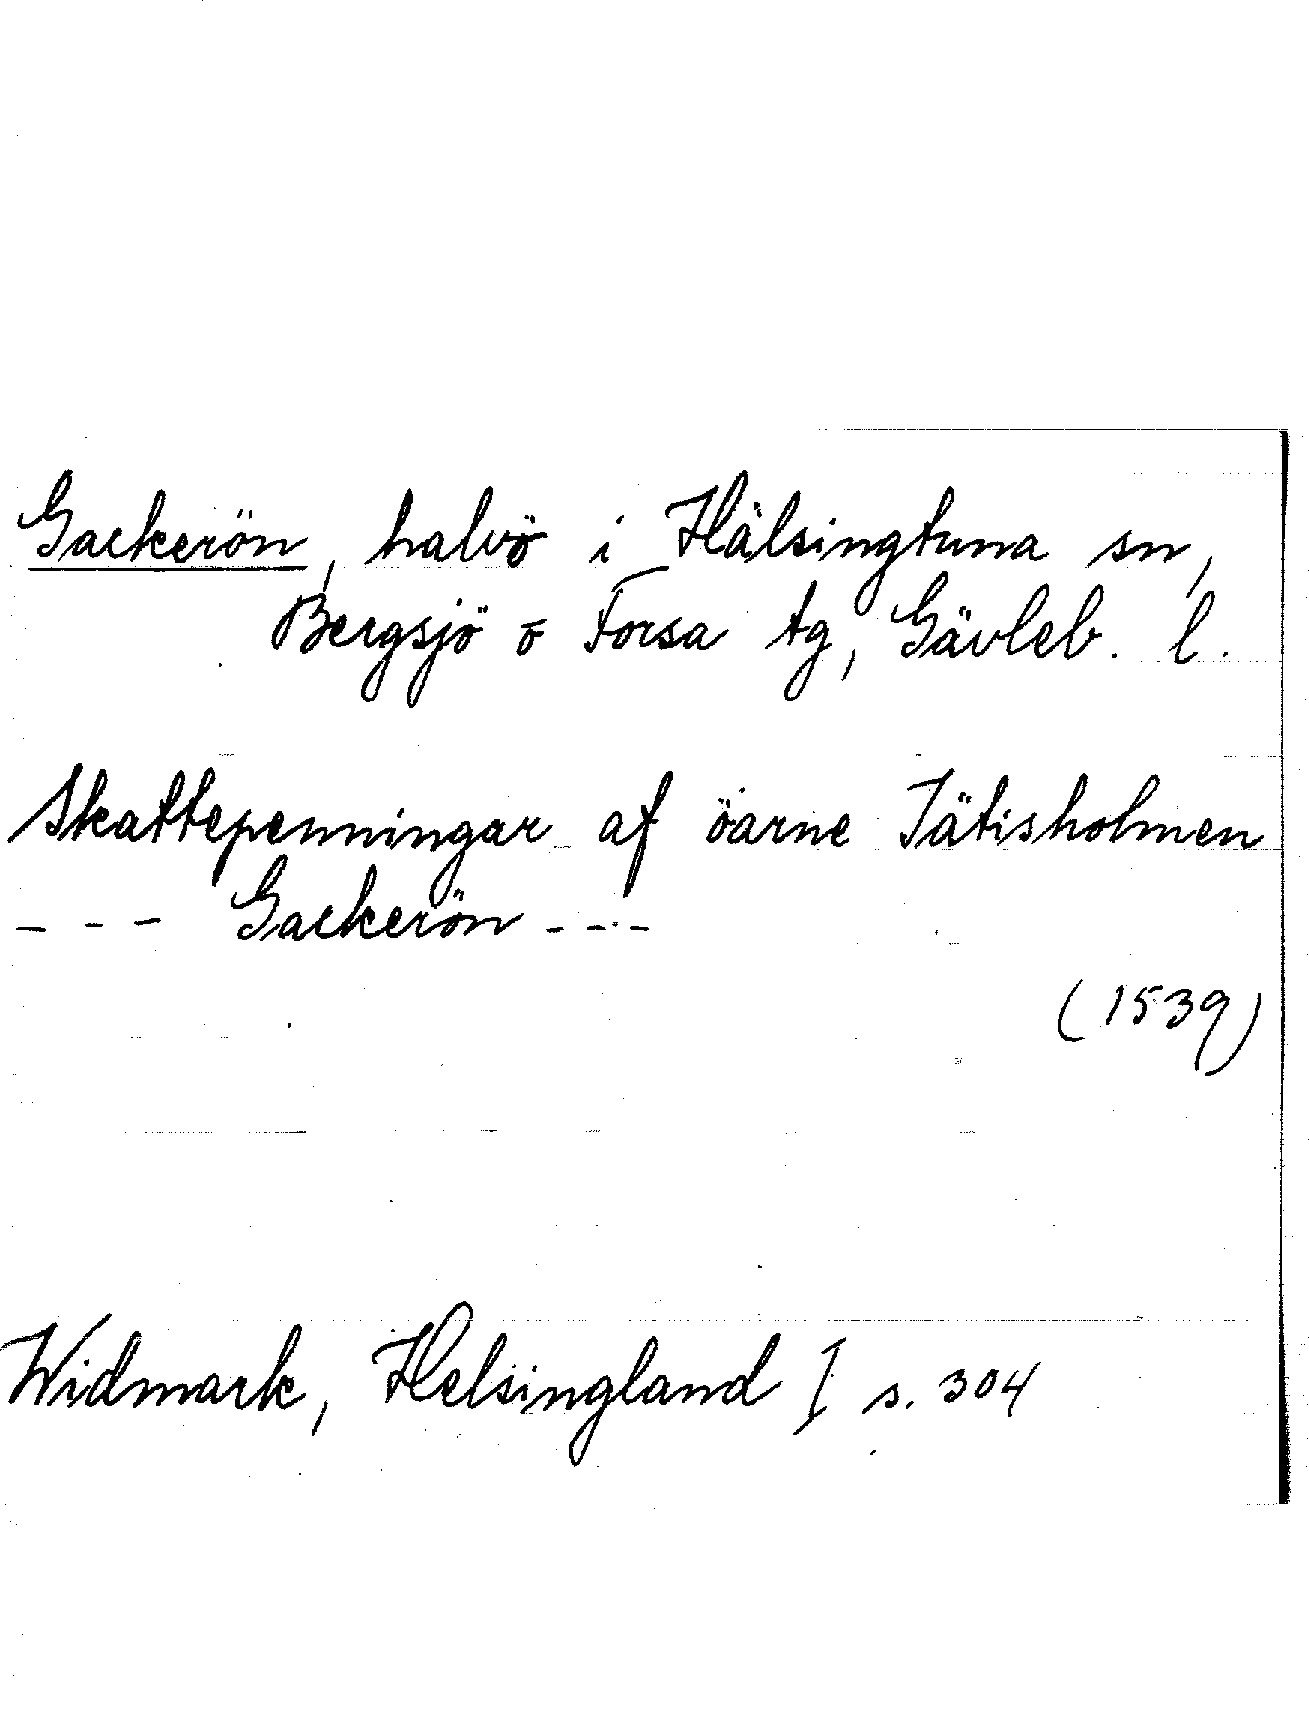 Gackerön, halvö i Hälsingtuna sn,
Bergsjö o Forsa tg, Gävleb. l.
Skattepenningar af öarne Jätisholmen
--- Gackerön ---
(1539)
Widmark, Helsingland I s. 304